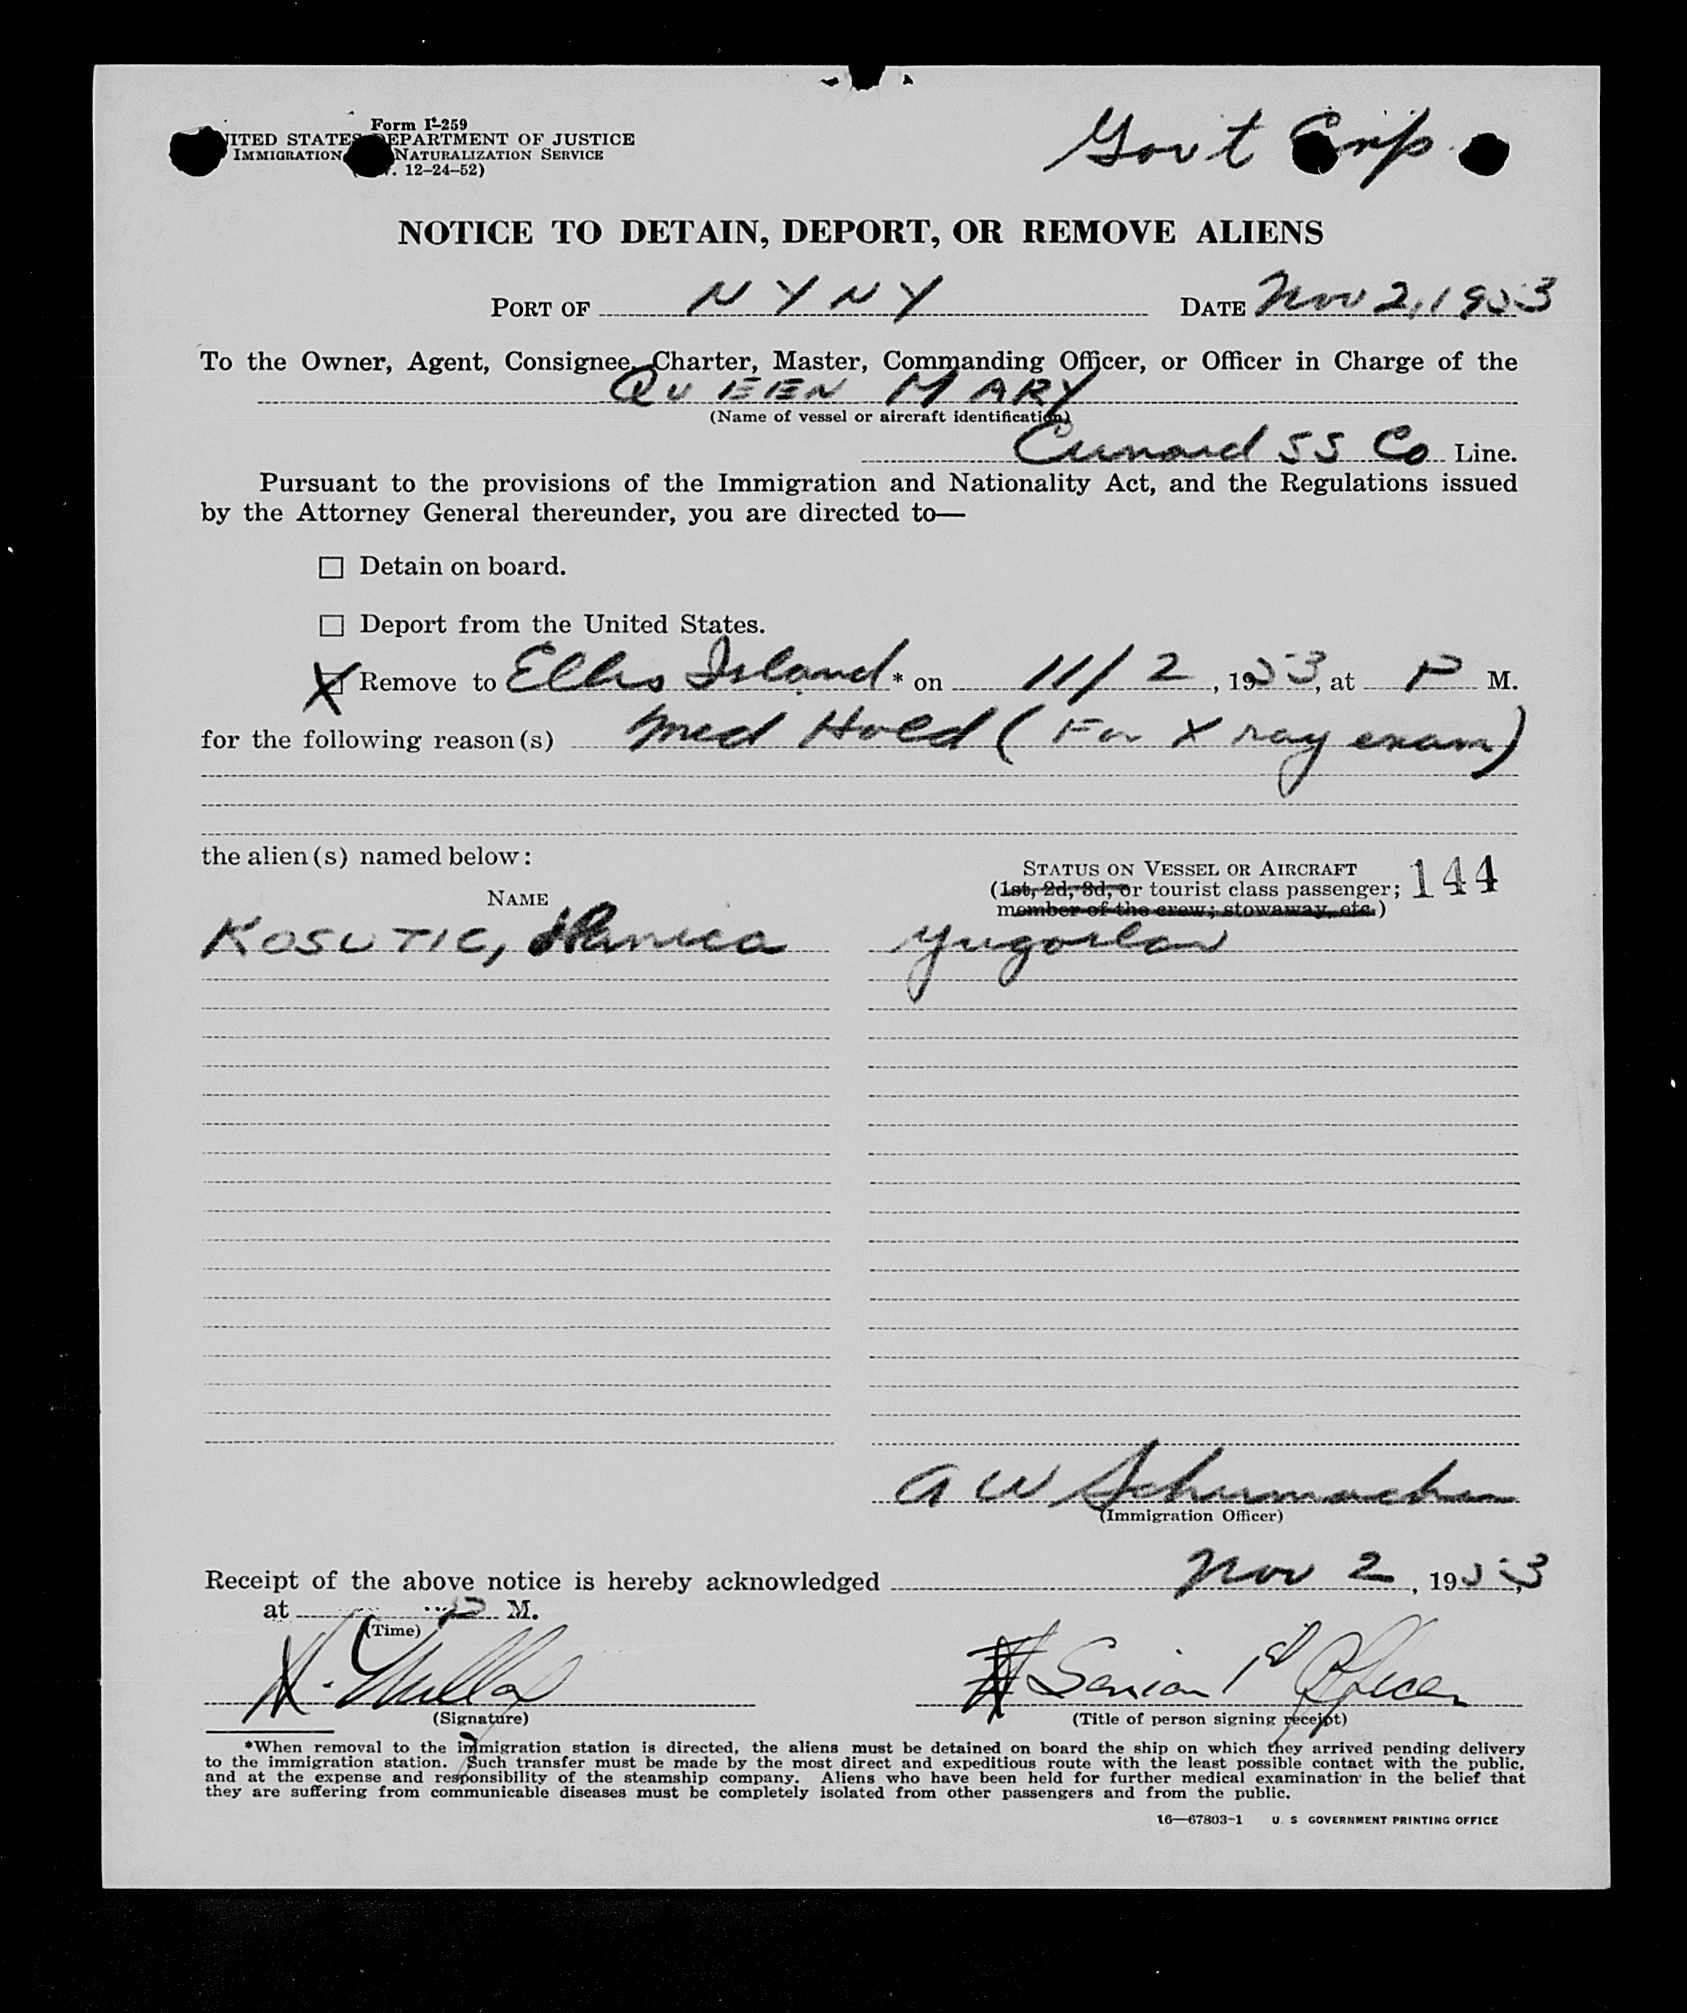 Form I-259
UNITED STATES DEPARTMENT OF JUSTICE
IMMIGRATION NATURALIZATION SERVICE
12–24–52)
Gov't Exp
NOTICE TO DETAIN, DEPORT, OR REMOVE ALIENS
PORT OF NYNY DATE Nov 2, 1953
To the Owner, Agent, Consignee, Charter, Master, Commanding Officer, or Officer in Charge of the
QUEEN MARY
(Name of vessel or aircraft identification)
Cunard SS Co Line.
Pursuant to the provisions of the Immigration and Nationality Act, and the Regulations issued
by the Attorney General thereunder, you are directed to—
☐ Detain on board.
☐ Deport from the United States.
X Remove to Ellis Island * on 11/2, 1953, at P M.
for the following reason(s) Med Hold (For X ray exam)
the alien(s) named below:
STATUS ON VESSEL OR AIRCRAFT
144
NAME
(1st, 2d, 3d, or tourist class passenger;
member of the crew; stowaway, etc.)
KOSUTIC, Yugoslav
A W Schumacher
(Immigration Officer)
Receipt of the above notice is hereby acknowledged Nov 2, 1953,
at P M.
(Time)
Senior 1st Officer
(Signature) (Title of person signing receipt)
*When removal to the immigration station is directed, the aliens must be detained on board the ship on which they arrived pending delivery
to the immigration station. Such transfer must be made by the most direct and expeditious route with the least possible contact with the public,
and at the expense and responsibility of the steamship company. Aliens who have been held for further medical examination in the belief that
they are suffering from communicable diseases must be completely isolated from other passengers and from the public.
16—67803-1 U. S. GOVERNMENT PRINTING OFFICE